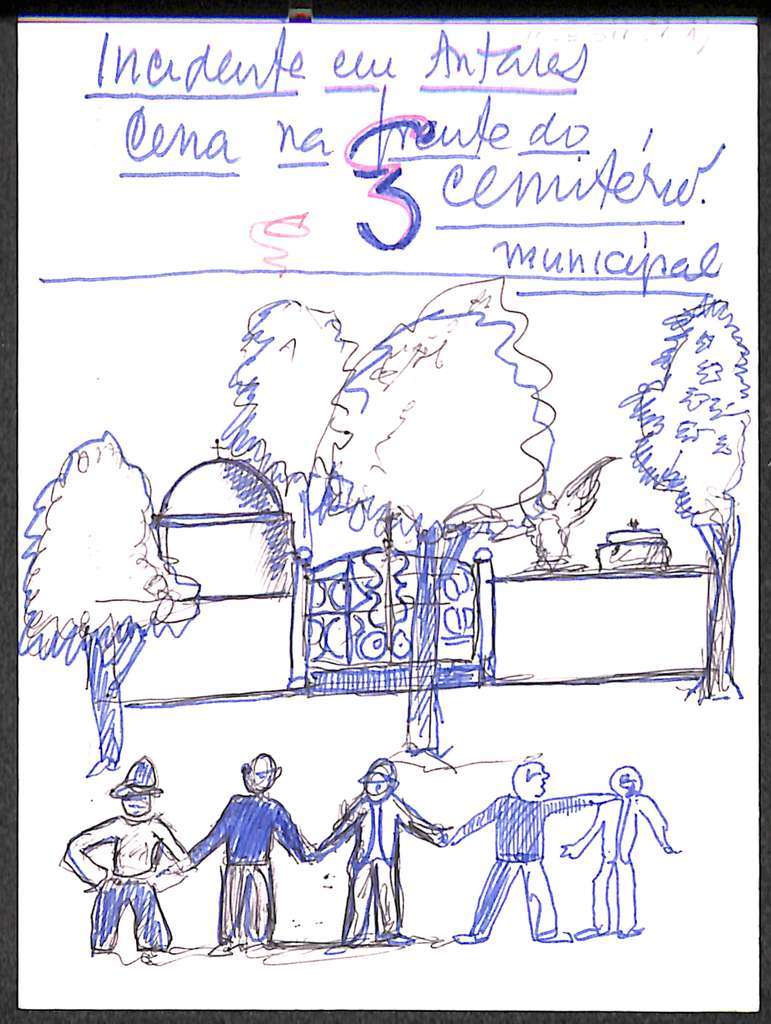 Incidente em Antares
Cena na frente do
3
cemitério.
municipal